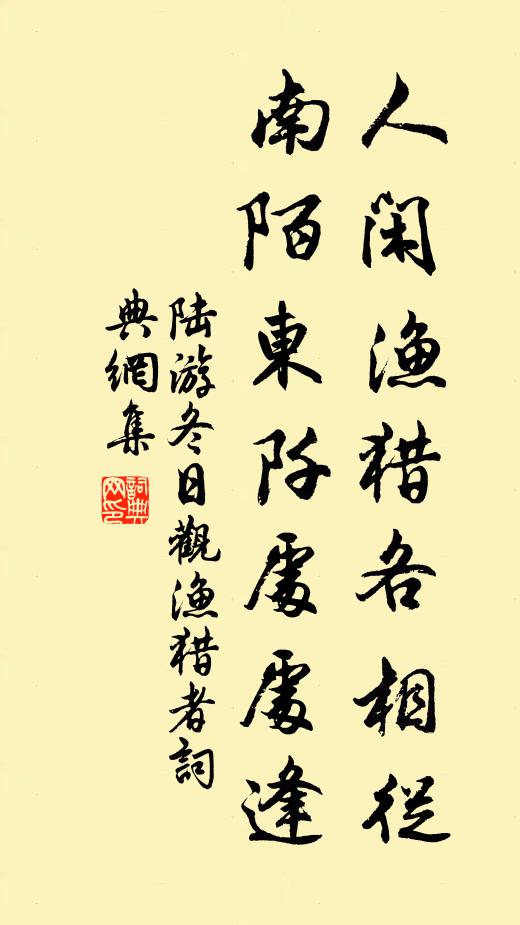 人閑漁猎各相從
南陌東阡處處逢
陸游冬日觀漁猎者詞
典網集
詞典网印